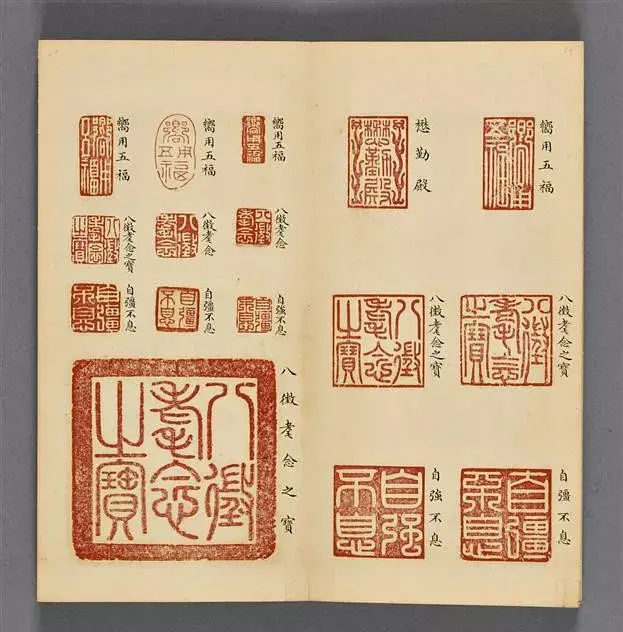 嚮用五福
懋勤殿
八徵耄念之寶
八徵耄念之寶
自彊不息
自強不息
嚮用五福
嚮用五福
嚮用五福
八徵耄念
八徵耄念
八徵耄念之寶
自彊不息
自彊不息
自彊不息
八徵耄念之寶